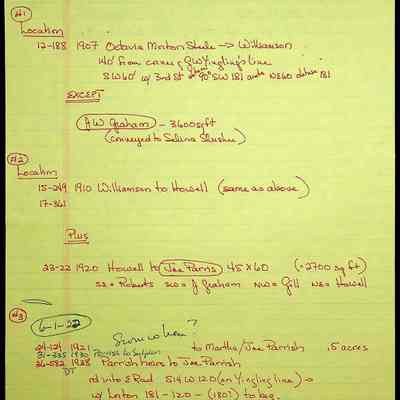 #1
Location
12-188 1907 Octavia Morton Steele → Williamson
140' from corner of GW Yingling's line
SW60' w/ 3rd St 90° SW 181 NE60 181
EXCEPT
A.W. Graham - 3600 sq ft
(conveyed to Selina Strister)
#2
Location
15-249 1910 Williamson to Howell (same as above)
17-361
Plus
23-22 1920 Howell to Joe Parris 45 x 60 (= 2700 sq ft)
SE = Roberts SW = J Graham NW = Gill NE = Howell
#3
6-1-22 Somewhere?
24-124 1921 to Martha/Joe Parrish .5 acres
31-335 1930 Parrish to
36-582 1938 Parrish heirs to Joe Parrish
DT
rd into E Rad S14W 120 (on Yingling line) →
w/ Linton 181 - 120 - (180?) to beg.